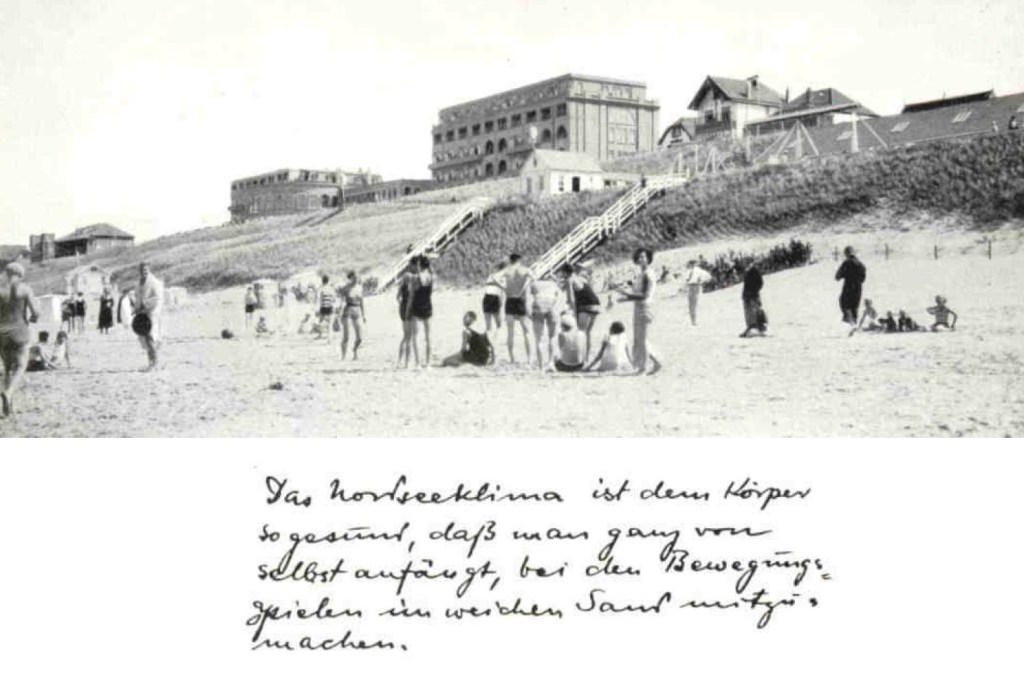 Das Nordseeklima ist dem Körper
so gesund, daß man ganz von
selbst anfängt, bei den Bewegungs-
spielen im weichen Sand mitzu-
machen.